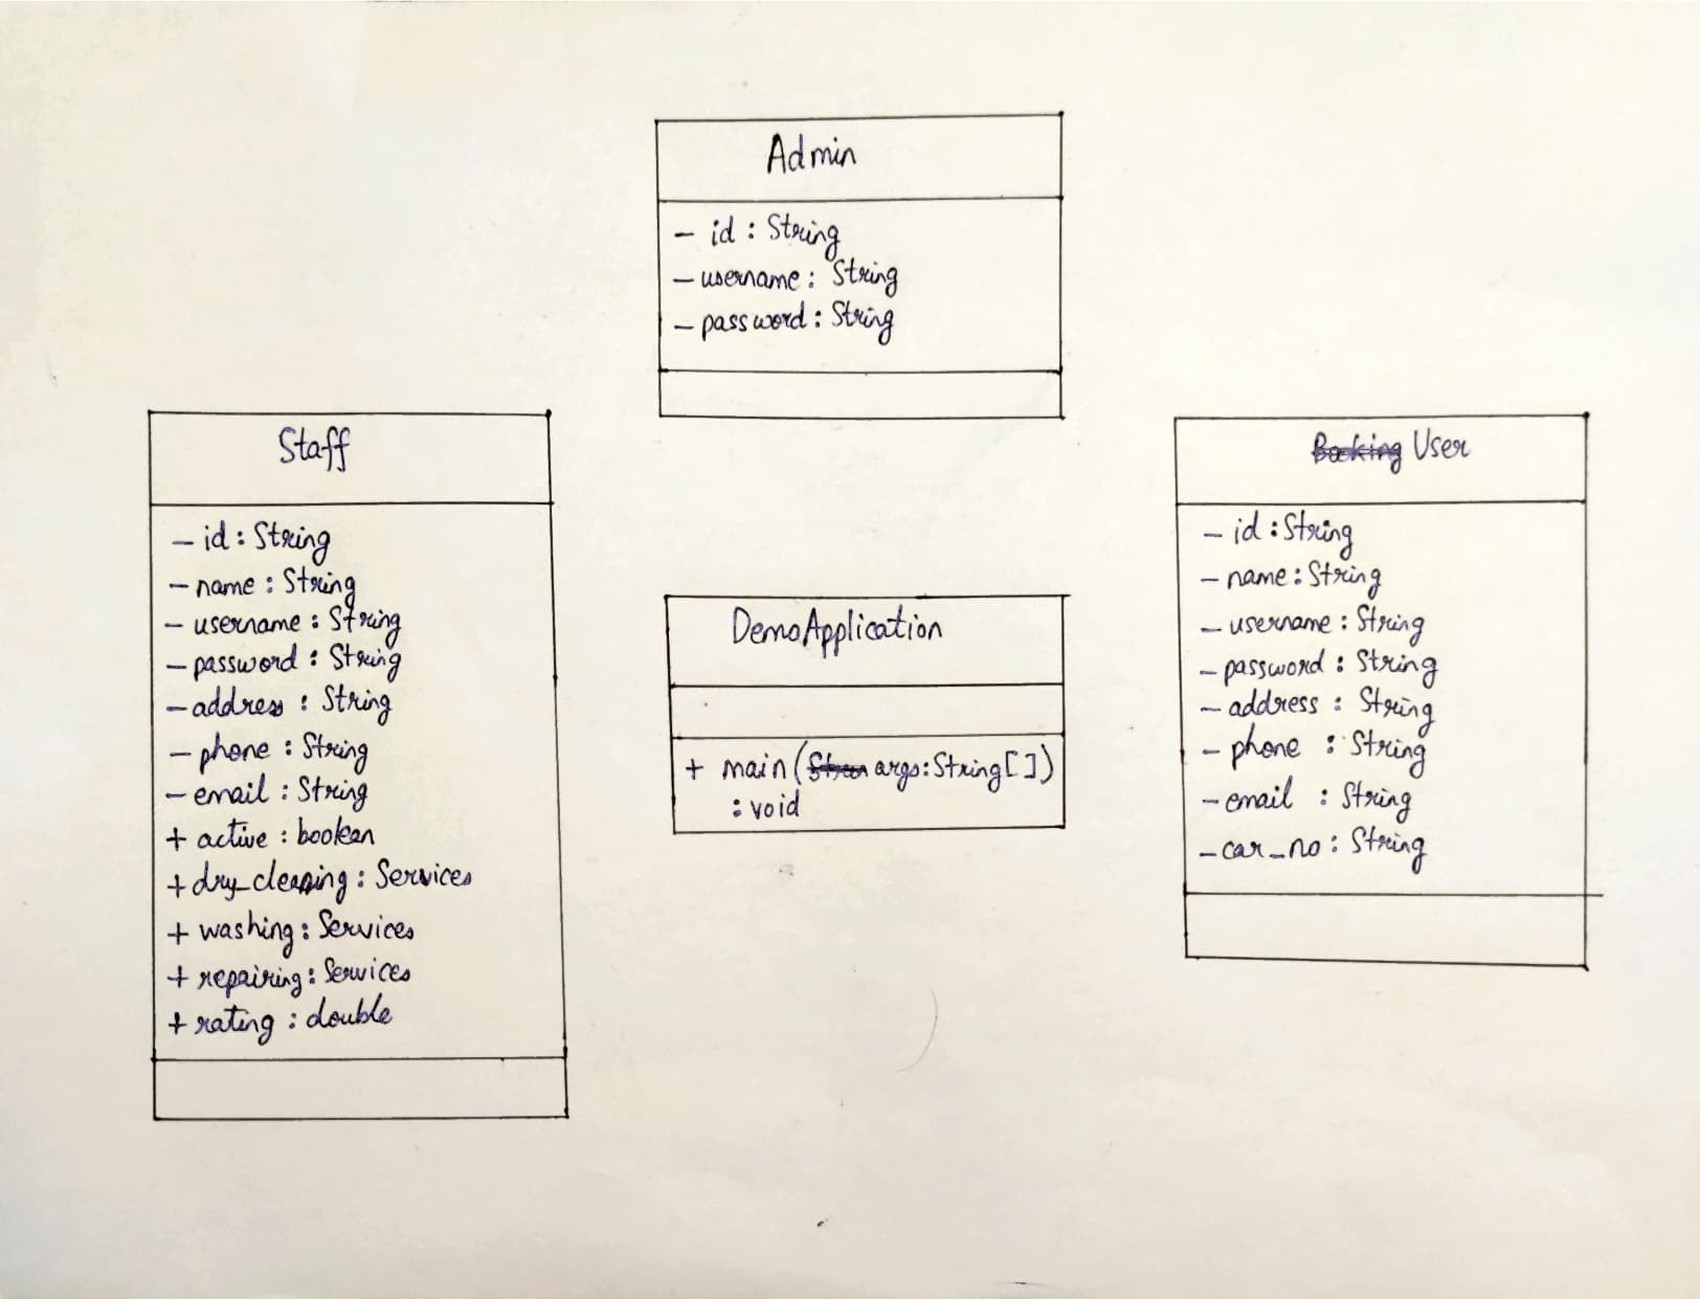 Admin
- id : String
- username : String
- password : String
Staff
- id : String
- name : String
- username : String
- password : String
- address : String
- phone : String
- email : String
+ active : boolean
+ dry_cleaning : Services
+ washing : Services
+ repairing : Services
+ rating : double
DemoApplication
+ main( args:String[])
: void
Booking User
- id : String
- name : String
- username : String
- password : String
- address : String
- phone : String
- email : String
- car_no : String